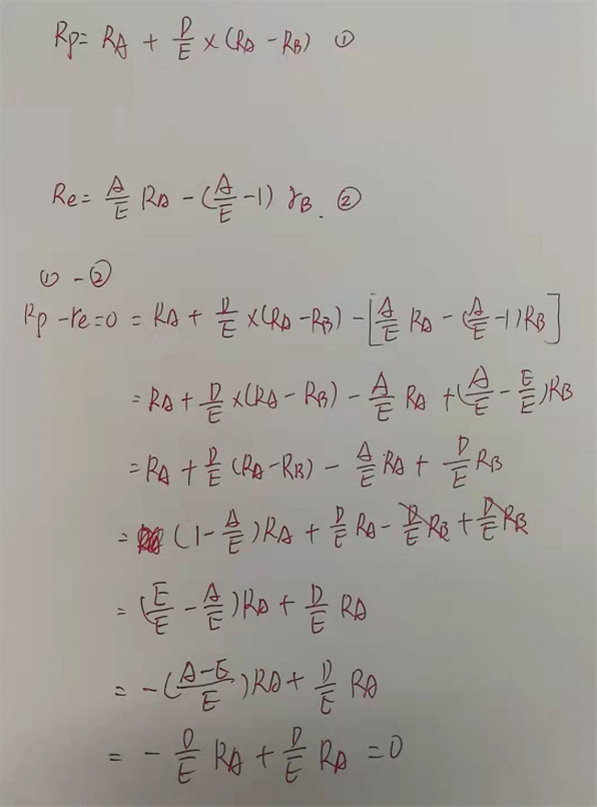 Rp = RA + D/E × (RA - RB) ①
Re = A/E RA - (A/E - 1) rB. ②
① - ②
Rp - re = 0 = RA + D/E × (RA - RB) - [A/E RA - (A/E - 1) RB]
= RA + D/E × (RA - RB) - A/E RA + (A/E - E/E) RB
= RA + D/E (RA - RB) - A/E RA + D/E RB
= (1 - A/E) RA + D/E RA - D/E RB + D/E RB
= (E/E - A/E) RA + D/E RA
= - (A-E/E) RA + D/E RA
= - D/E RA + D/E RA = 0